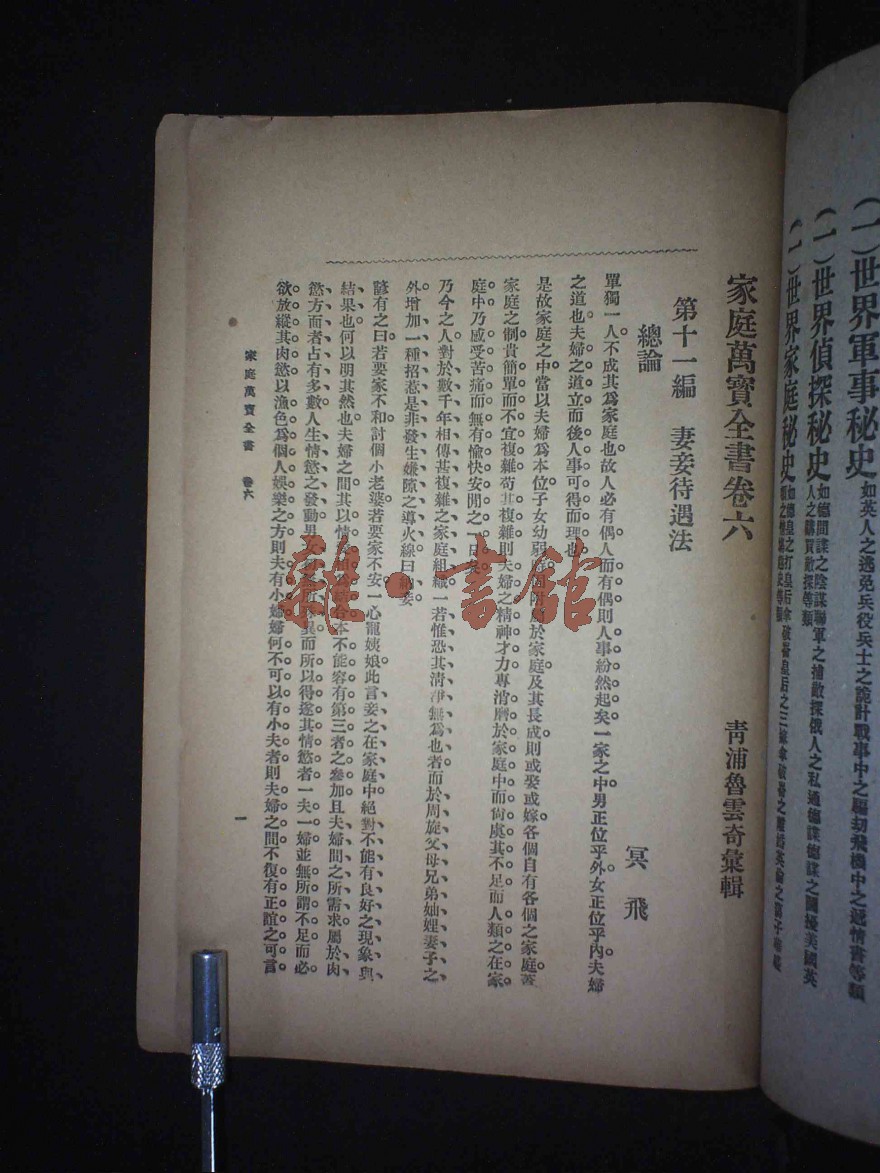 (一)世界軍事秘史如英人之逃免兵役兵士之詭計戰事中之騙劫飛機中之遞情書等類
(一)世界偵探秘史如德間諜之陰謀聯軍之捕敵探俄人之私通德諜德諜之圖擾美國英人之購買敵探等類
(一)世界家庭秘史如德皇之打皇后
家庭萬寶全書卷六
青浦魯雲奇彙輯
第十一編 妻妾待遇法
總論
冥飛
單獨一人。不成其爲家庭也。故人必有偶。人而有偶。則人事紛然起矣。一家之中。男正位乎外。女正位乎內。夫婦
之道也。夫婦之道立。而後人事可得而理也。
是故家庭之中。當以夫婦爲本位。子女幼弱。固附屬於家庭。及其長成。則或娶或嫁。各個自有各個之家庭。蓋
家庭之制。貴簡單而不宜複雜。苟其複雜。則夫婦之精神才力。專消磨於家庭中而尙處其不足。而人類之在家
庭中。乃感受苦痛。而無有愉快安閒之一日矣。
乃今之人。對於數千年相傳甚複雜之家庭組織。一若惟恐其淸淨無爲也者。而於周旋父母兄弟妯娌妻子之
外。增加一種招惹是非發生嫌隙之導火線。曰納妾。
諺有之曰。若要家不和。討個小老婆。若要家不安。一心寵姨娘。此言妾之在家庭中。絕對不能有良好之現象與
結果也。何以明其然也。夫婦之間。其以情結合。本不能容有第三者之參加。且夫婦間之所需求屬於肉
慾方面者。占有多數。人生情慾之發動。男女初無所異。而所以得遂其情慾者。一夫一婦。並無所謂不足。而必
欲放縱其肉慾。以漁色爲個人娛樂之方。則夫有小婦。婦何不可以有小夫者。則夫婦之間。不復有正誼之可言。
家庭萬寶全書 卷六
一
雜·書館